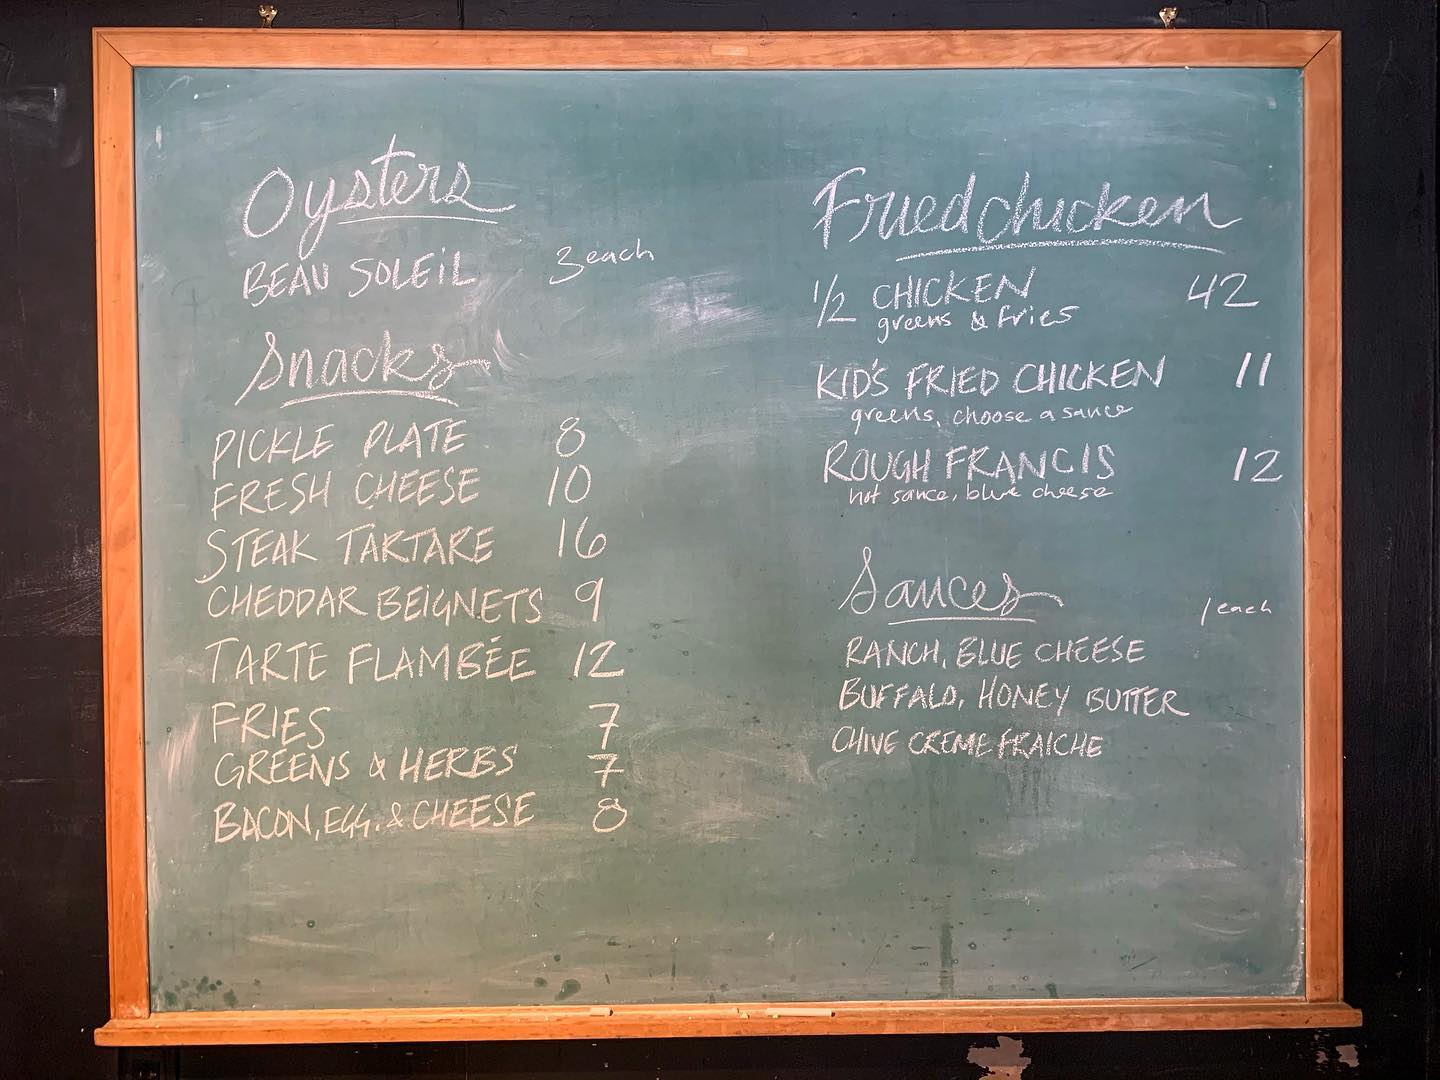 Oysters
BEAU SOLEIL 3 each
Snacks
PICKLE PLATE 8
FRESH CHEESE 10
STEAK TARTARE 16
CHEDDAR BEIGNETS 9
TARTE FLAMBÉE 12
FRIES 7
GREENS & HERBS 7
BACON, EGG, & CHEESE 8
Fried chicken
1/2 CHICKEN 42
greens & fries
KID'S FRIED CHICKEN 11
greens, choose a sauce
ROUGH FRANCIS 12
hot sauce, blue cheese
Sauces 1 each
RANCH, BLUE CHEESE
BUFFALO, HONEY BUTTER
CHIVE CREME FRAICHE